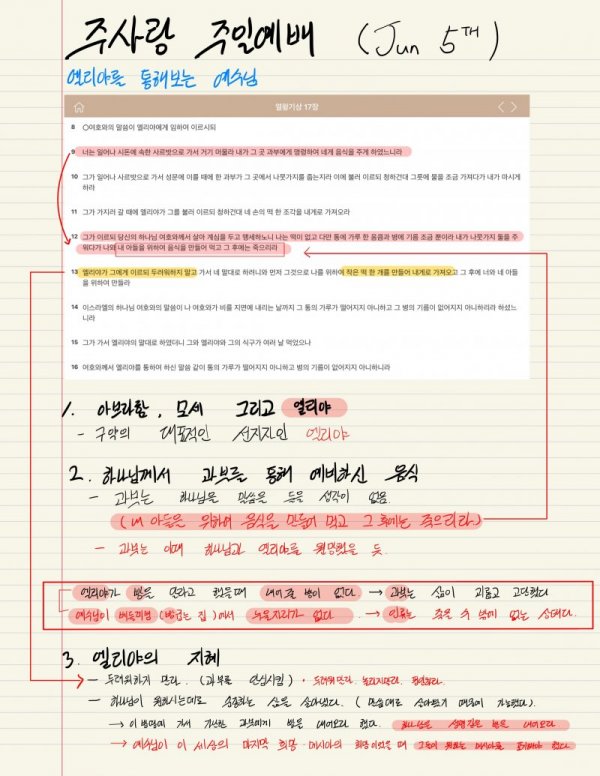 주사랑 주일예배 (Jun 5th)
엘리야를 통해보는 예수님
열왕기상 17장
8 ○여호와의 말씀이 엘리야에게 임하여 이르시되
9 너는 일어나 시돈에 속한 사르밧으로 가서 거기 머물라 내가 그 곳 과부에게 명령하여 네게 음식을 주게 하였느니라
10 그가 일어나 사르밧으로 가서 성문에 이를 때에 한 과부가 그 곳에서 나뭇가지를 줍는지라 이에 불러 이르되 청하건대 그릇에 물을 조금 가져다가 내가 마시게
하라
11 그가 가지러 갈 때에 엘리야가 그를 불러 이르되 청하건대 네 손의 떡 한 조각을 내게로 가져오라
12 그가 이르되 당신의 하나님 여호와께서 살아 계심을 두고 맹세하노니 나는 떡이 없고 다만 통에 가루 한 움큼과 병에 기름 조금 뿐이라 내가 나뭇가지 둘을 주
워다가 나와 내 아들을 위하여 음식을 만들어 먹고 그 후에는 죽으리라
13 엘리야가 그에게 이르되 두려워하지 말고 가서 네 말대로 하려니와 먼저 그것으로 나를 위하여 작은 떡 한 개를 만들어 내게로 가져오고 그 후에 너와 네 아들
을 위하여 만들라
14 이스라엘의 하나님 여호와의 말씀이 나 여호와가 비를 지면에 내리는 날까지 그 통의 가루가 떨어지지 아니하고 그 병의 기름이 없어지지 아니하리라 하셨느
니라
15 그가 가서 엘리야의 말대로 하였더니 그와 엘리야와 그의 식구가 여러 날 먹었으나
16 여호와께서 엘리야를 통하여 하신 말씀 같이 통의 가루가 떨어지지 아니하고 병의 기름이 없어지지 아니하니라
1. 아브라함, 모세 그리고 엘리야
- 구약의 대표적인 선지자인 엘리야
2. 하나님께서 과부를 통해 예비하신 음식
- 과부는 하나님을 말씀을 들을 생각이 없음
(내 아들은 위하여 음식을 만들어 먹고 그 후에는 죽으리라)
- 과부는 이때 하나님과 엘리야를 원망했을 듯.
엘리야가 빵을 달라고 했을때 내어줄 빵이 없다 → 과부는 삶이 괴롭고 고단했다
예수님이 베들레헴 (빵굽는 집)에서 누울자리가 없다. → 인류는 죽을 수 밖에 없는 상태다.
3. 엘리야의 지혜
- 두려워하지 말라. (과부를 안심시킴) · 두려워말라. 놀라지말라. 평안하라.
- 하나님이 원하시는대로 순종하는 삶을 살아냈다. (말씀대로 살아냈기 때문에 가능했다)
→ 이방땅에 가서 가난한 과부에게 빵을 내어오라 했다. 하나님은 생명같은 빵을 내어오라
→ 예수님이 이 세상의 마지막 희망· 메시아의 희망이었을 때